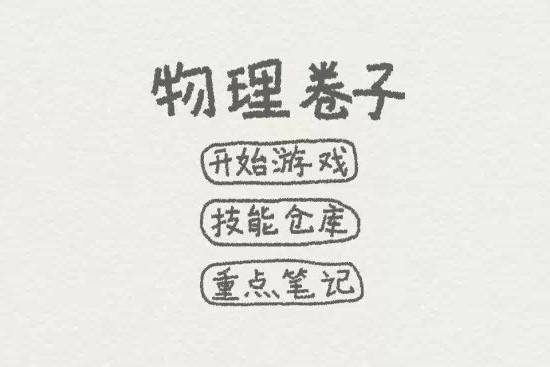 物理卷子
开始游戏
技能仓库
重点笔记